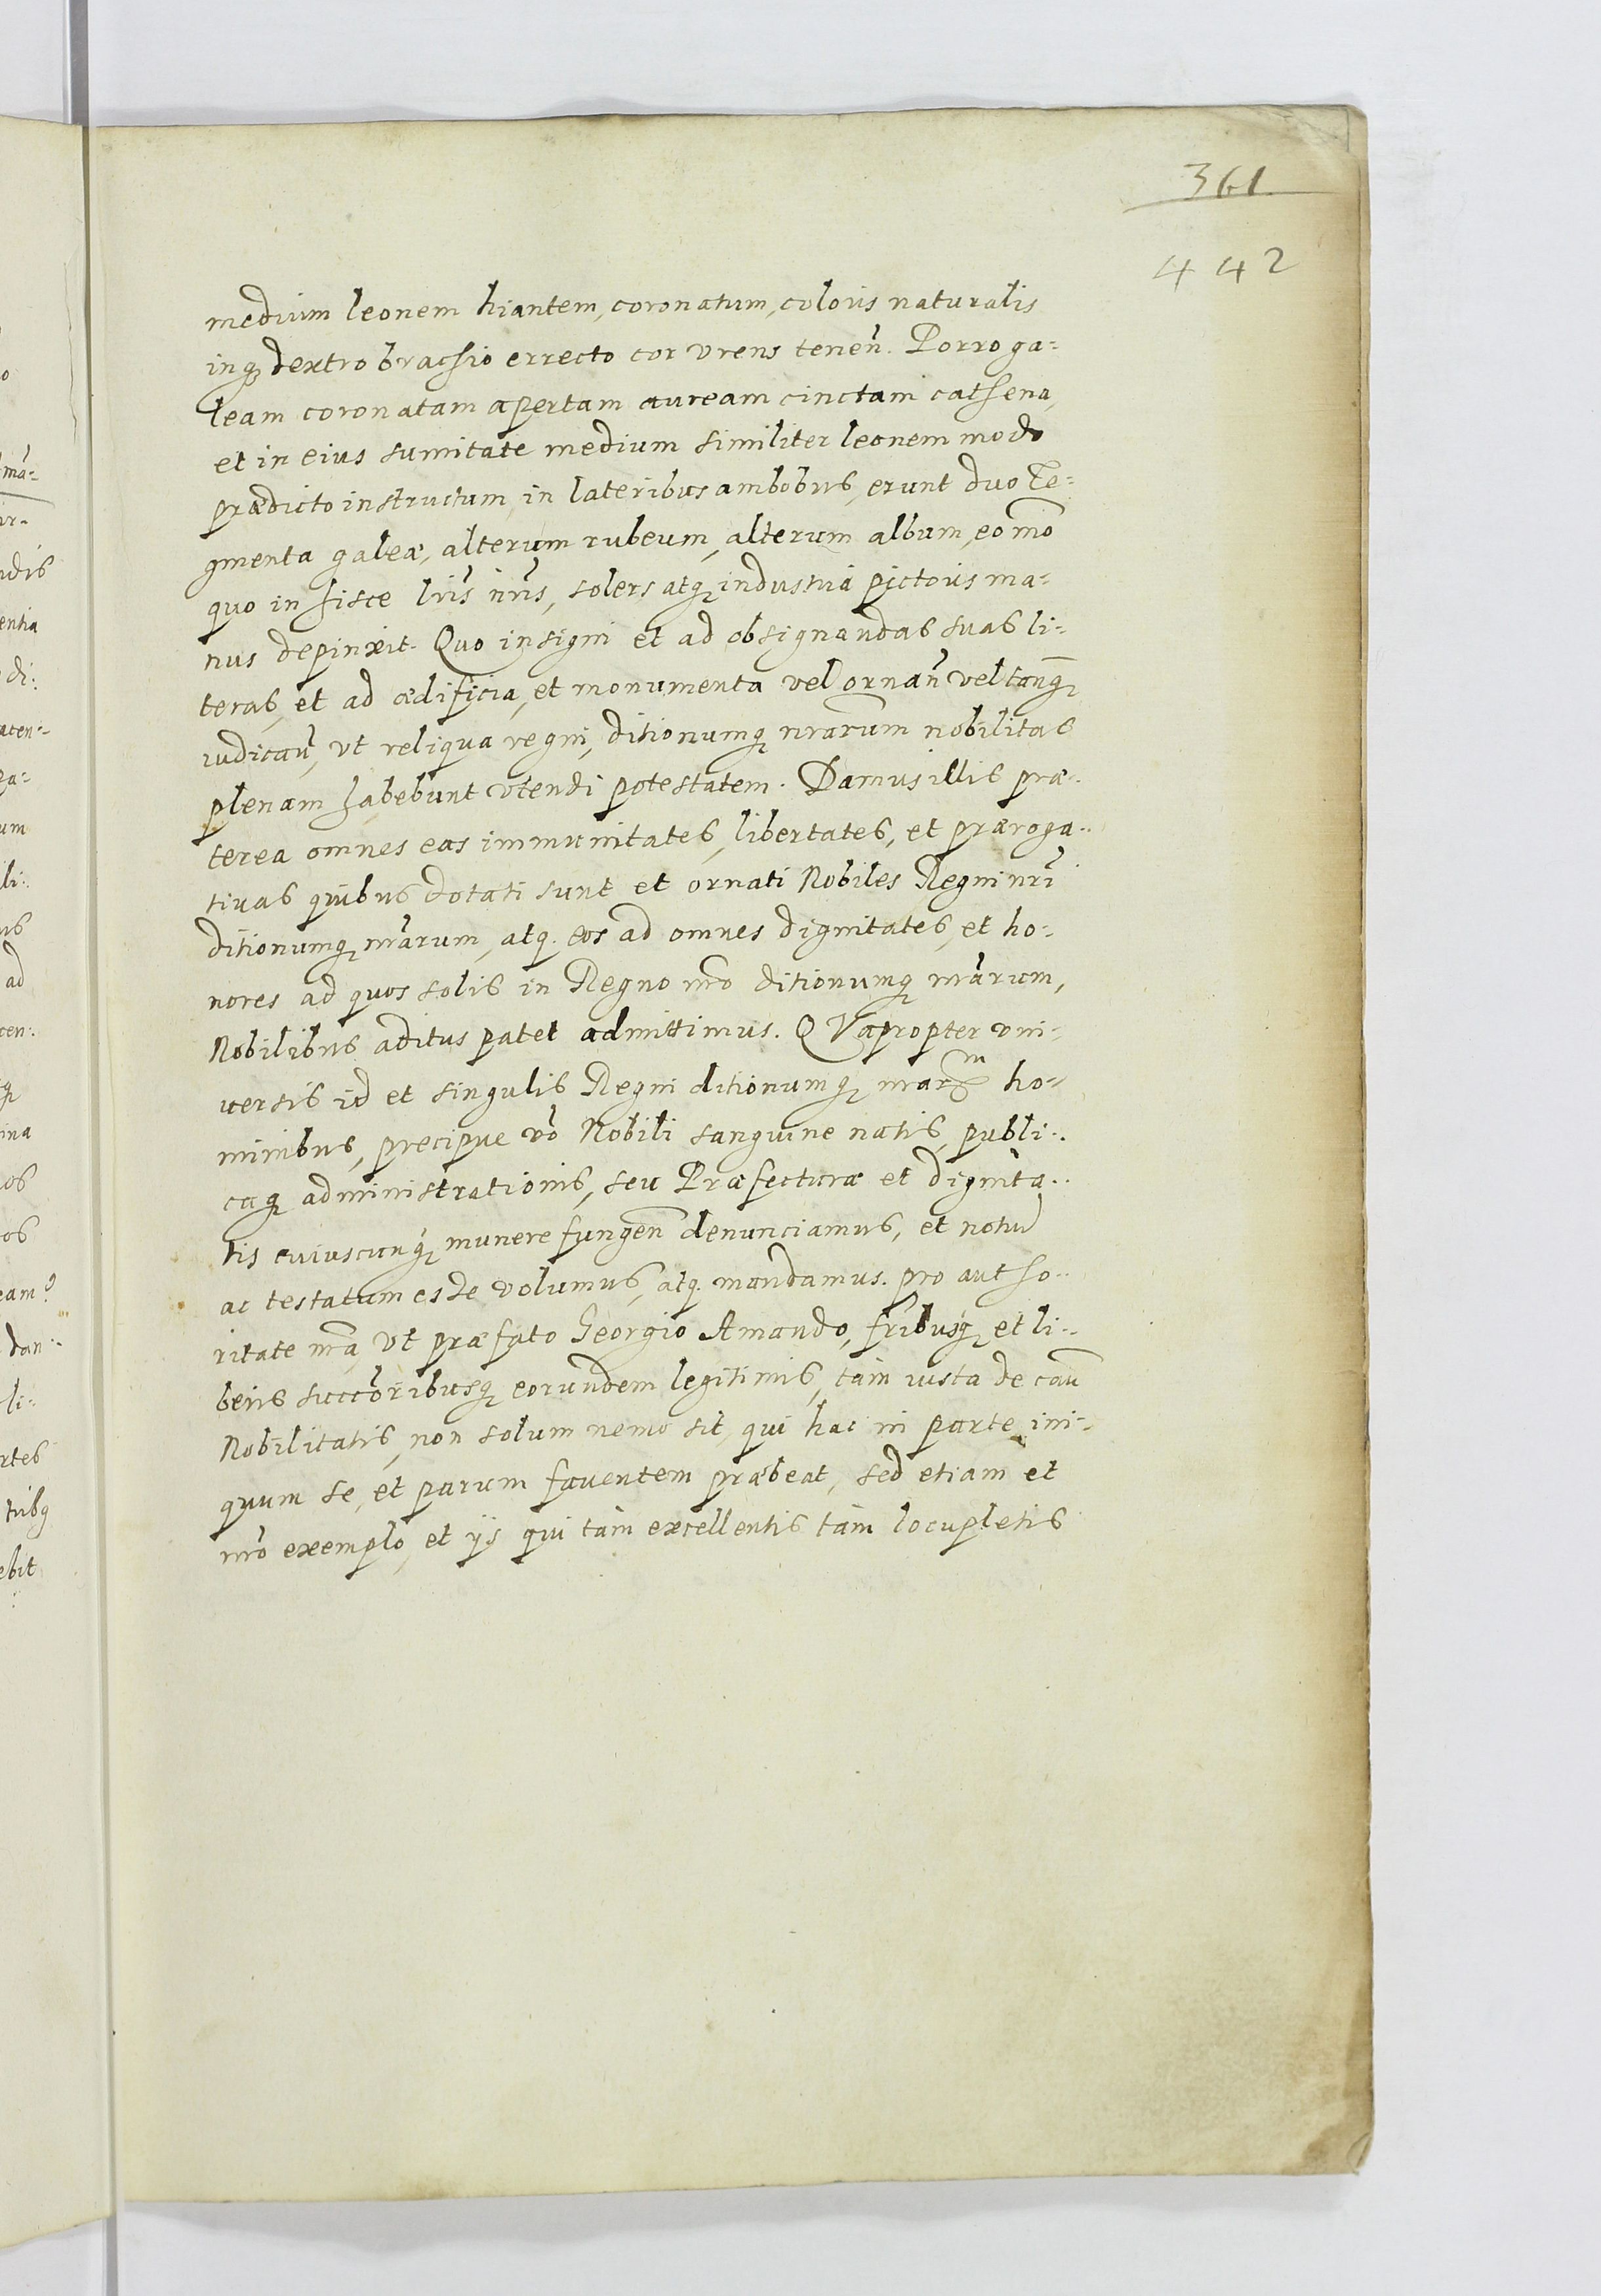 361
442
medium leonem hiantem, coronatum, coloris naturalis
inq₃ dextro brachio errecto cor vrens tenen̄. Porro ga=
leam coronatam apertam auream cinctam cathena,
et in eius sumitate medium similiter leonem modo
prædicto instructum, in lateribus ambobus, erunt duo te=
gmenta galeæ, alterum rubeum, alterum album, eo mō
quo in hisce lrīs nrīs, solers atq₃ industria pictoris ma=
nus depinxit. Quo insigni et ad obsignandas suas li=
teras, et ad ædificia, et monumenta vel ornan̄ vel tanq̄₃
iudican̄, vt reliqua regni, ditionumq₃ nrarum nobilitas
plenam habebunt vtendi potestatem. Damus illis præ=
terea omnes eas immunitates, libertates, et præroga=
tiuas quibus dotati sunt et ornati Nobiles Regni nrī
ditionumq₃ nrārum, atq. eos ad omnes dignitates, et ho=
nores ad quos solis in Regno nrō ditionumq₃ nrārum,
Nobilibus aditus patet admittimus. QVapropter vni=
uersis id et singulis Regni ditionumq₃ nrarum ho=
minibus, precipue vō Nobili sanguine natis, publi=
caq₃ administrationis, seu Præfecturæ et dignita=
tis cuiuscunq₃ munere fungen̄ denunciamus, et notū
ac testatum esse volumus, atq. mandamus. pro autho=
ritate nrā, vt præfato Georgio Amando, frībusq₃ et li=
beris succōribusq₃ eorundem legitimis, tam iusta de cau̅
Nobilitatis, non solum nemo sit, qui hac in parte ini=
quum se, et parum fauentem præbeat, sed etiam et
nrō exemplo, et ijs qui tam excellentis tam locupletis